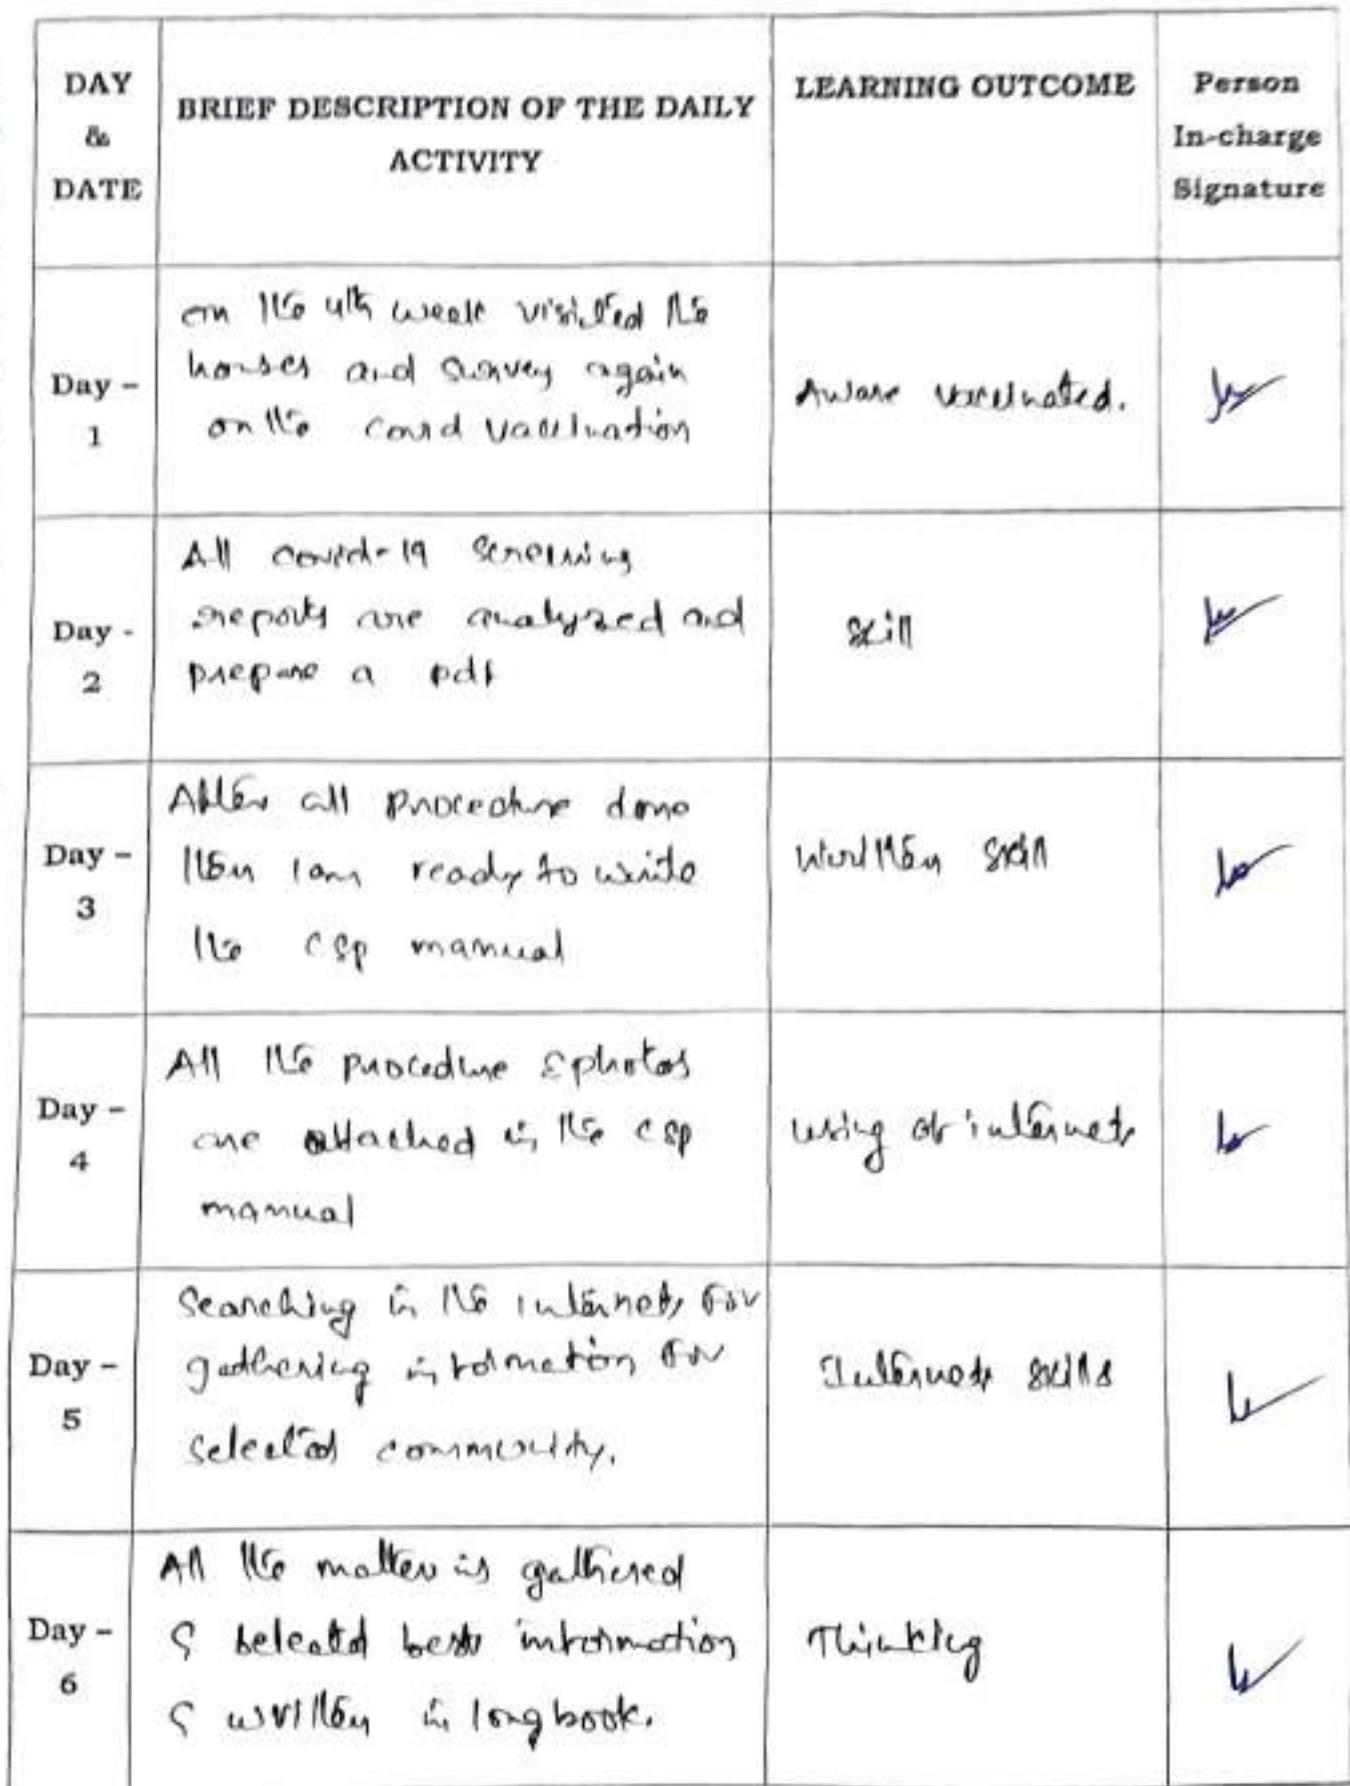 DAY & DATE
BRIEF DESCRIPTION OF THE DAILY ACTIVITY
LEARNING OUTCOME
Person In-charge Signature
Day – 1
on the 4th week visited the
houses and survey again
on the covid vaccination
Aware vaccinated.
Day - 2
All covid-19 screening
reports are analyzed and
prepare a pdf
skill
Day – 3
After all procedure done
then I am ready to write
the csp manual
written skill
Day – 4
All the procedure & photos
are attached in the csp
manual
using of internet
Day – 5
Searching in the internet for
gathering information for
selected community.
Internet skills
Day – 6
All the matter is gathered
& selected best information
& written in longbook.
Thinking